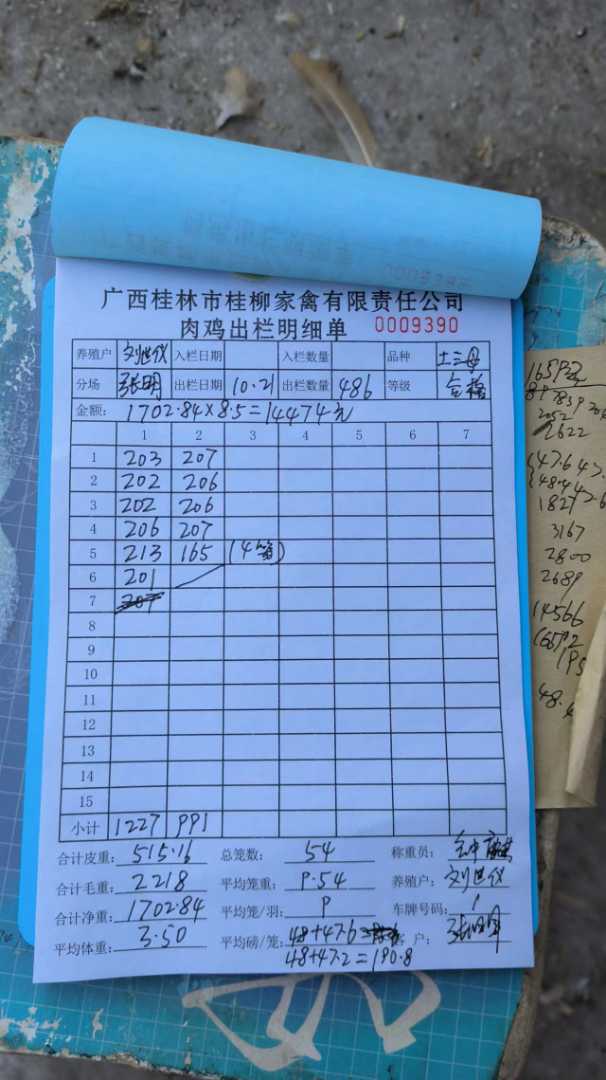 广西桂林市桂柳家禽有限责任公司
肉鸡出栏明细单 0009390
养殖户 刘世仪 入栏日期 入栏数量 品种 土三母
分场 张明 出栏日期 10.21 出栏数量 486 等级 合格
金额: 1702.84×8.5=14474元
1 2 3 4 5 6 7
1 203 207
2 202 206
3 202 206
4 206 207
5 213 165 (4笼)
6 201
7
8
9
10
11
12
13
14
15
小计 1227 991
合计皮重: 515.16 总笼数: 54 称重员:
合计毛重: 2218 平均笼重: 9.54 养殖户: 刘世仪
合计净重: 1702.84 平均笼/羽: 9 车牌号码: 1
平均体重: 3.50 平均磅/笼: 48+47.6= 客户:
48+47.2=190.8
2622
1827
3167
2800
2689
14566